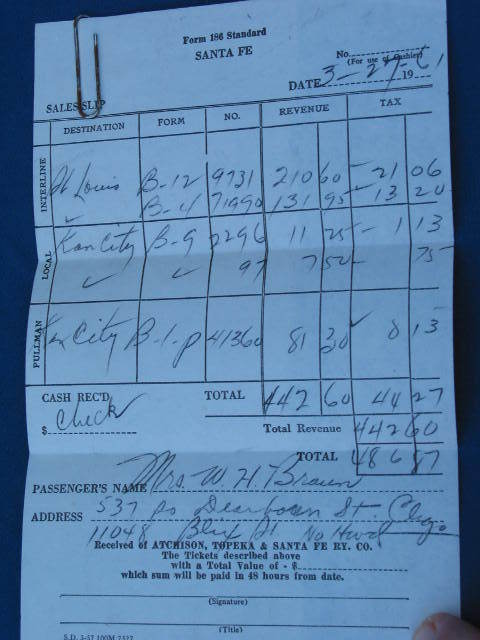 Form 186 Standard
SANTA FE
No.
(For use of Cashier)
DATE 3-27-61 19
SALES SLIP
DESTINATION FORM NO. REVENUE TAX
INTERLINE
St Louis B-12 9731 210 60 21 06
✓ B-4 71990 131 95 13 20
LOCAL
Kan City B-9 2296 11 25 1 13
✓ ✓ 97 7 50 75
PULLMAN
Kan City B-1-p 41360 81 30 8 13
CASH REC'D TOTAL 442 60 44 27
$ Check
Total Revenue 442 60
TOTAL 486 87
PASSENGER'S NAME Mrs. W. H. Braun
ADDRESS 537 So Dearborn St. Chg.
11048 Blix St No Hwd
Received of ATCHISON, TOPEKA & SANTA FE RY. CO.
The Tickets described above
with a Total Value of - $
which sum will be paid in 48 hours from date.
(Signature)
(Title)
S.D. 3-57 100M 7327